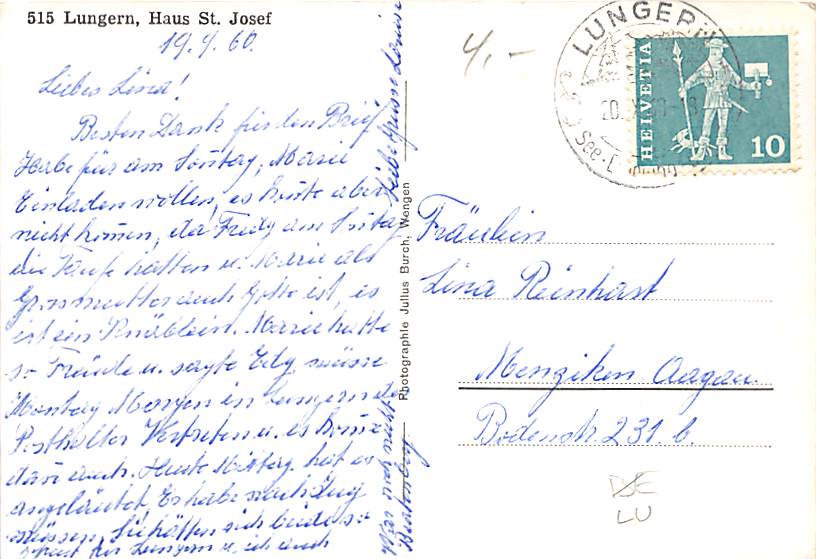 515 Lungern, Haus St. Josef
19.4.60.
Liebes Lina!
Besten Dank für den Brief
Habe für am Sontag, Marie
Einladen wollen, es könte aber
nicht komen, da Fredy am Sontag
die Taufe hatten u. Marie als
Grossmutter auch Gotte ist, es
ist ein Knäblein. Marie hatte
so Freude u. sagte Edy müsse
Montag Morgen in Lungern de
Posthalter Vertreten u. es kome
dan auch. Heute Mittag hat es
angeläutet, Es habe nach Zug
müssen, Sie hätten sich beide so
gefreut für Lungern u. ich auch
War noch nicht
Liebe Grüsse Louise
Photographie Julius Burch, Wengen
4.-
LUNGERN
20.
HELVETIA
10
Fräulein
Lina Reinhart
Menziken Aargau
Bodenstr. 231. b.
LU